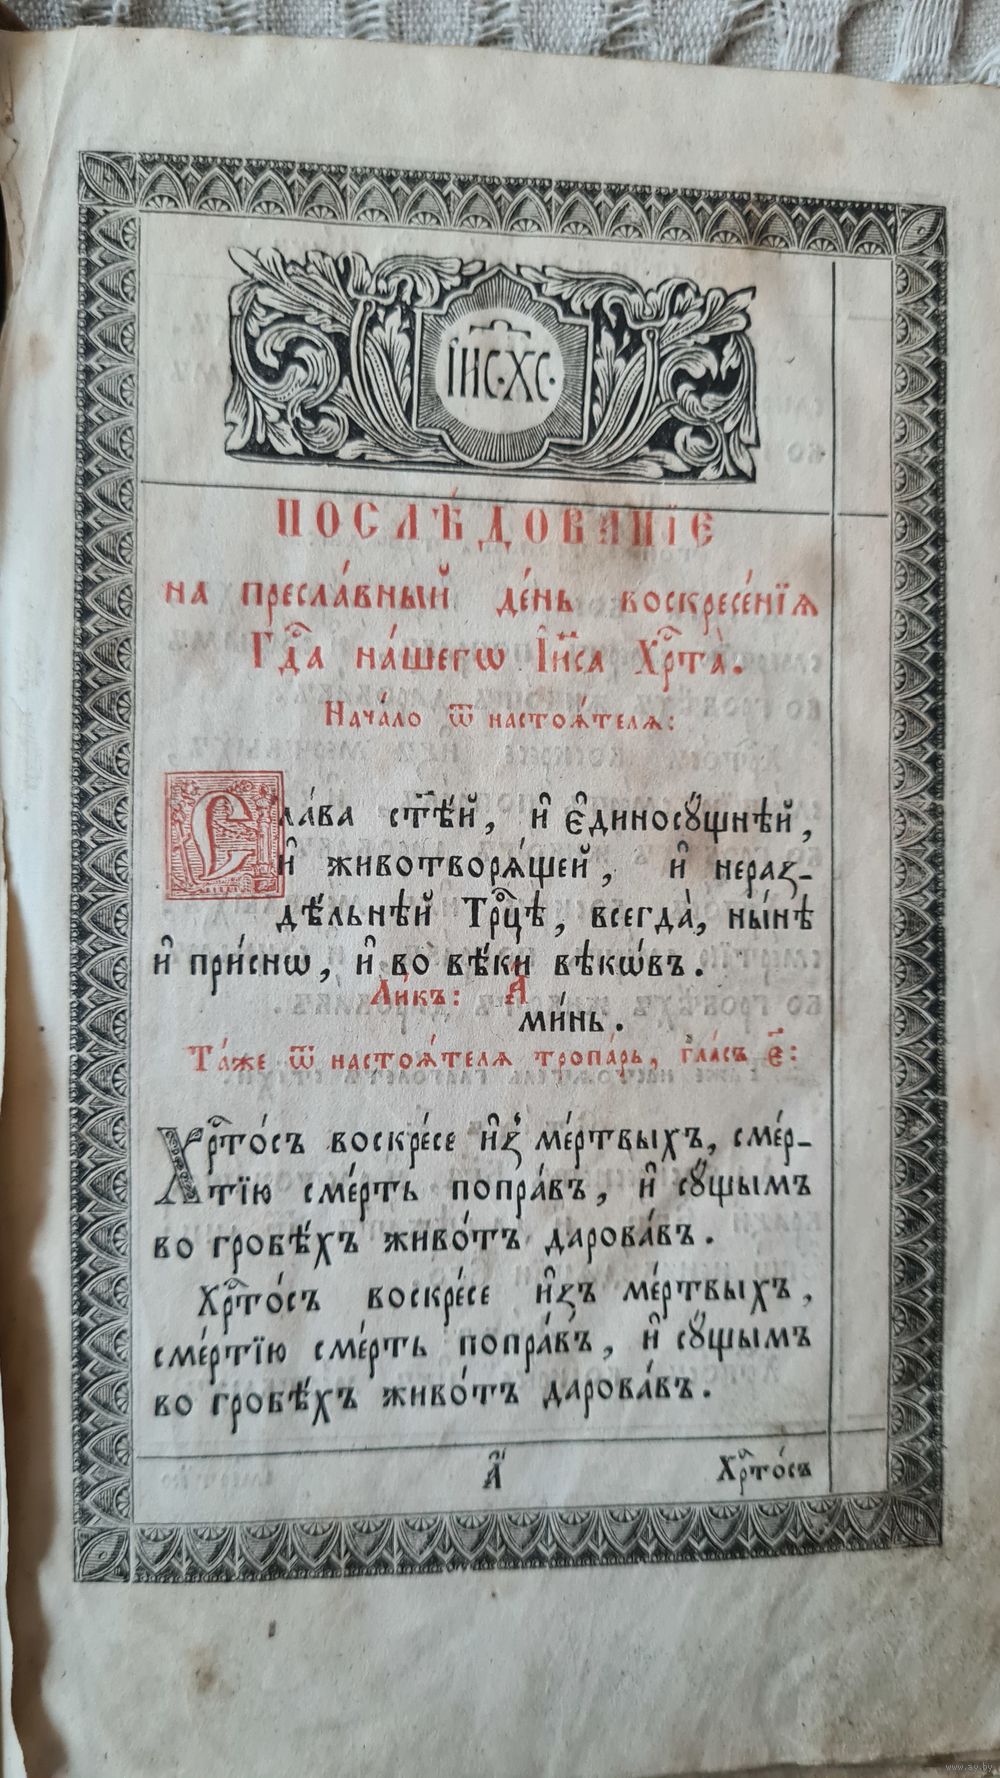 І҆ИС. ХС.
ПОСЛѢ́ДОВАНЇЕ
на пресла́вный де́нь воскресе́нїѧ
Гдⷭ҇а на́шегѡ І҆и҃са Хрⷭ҇та̀.
Нача́ло ѿ настоѧ́телѧ:
Сла́ва ст҃ѣ́й, и҆ є҆диносꙋ́щнѣй,
и҆ животворѧ́щей, и҆ нераз-
дѣ́льнѣй Трⷪ҇цѣ, всегда̀, ны́нѣ
и҆ при́снѡ, и҆ во вѣ́ки вѣкѡ́въ.
Ли́къ: А҆
ми́нь.
Та́же ѿ настоѧ́телѧ тропа́рь, гла́съ є҃:
Хрⷭ҇то́съ воскре́се и҆з̾ ме́ртвыхъ, сме́р-
тїю сме́рть попра́въ, и҆ сꙋ́щымъ
во гробѣ́хъ живо́тъ дарова́въ.
Хрⷭ҇то́съ воскре́се и҆зъ ме́ртвыхъ,
сме́ртїю сме́рть попра́въ, и҆ сꙋ́щымъ
во гробѣ́хъ живо́тъ дарова́въ.
а҃
Хрⷭ҇то́съ
www.ay.by